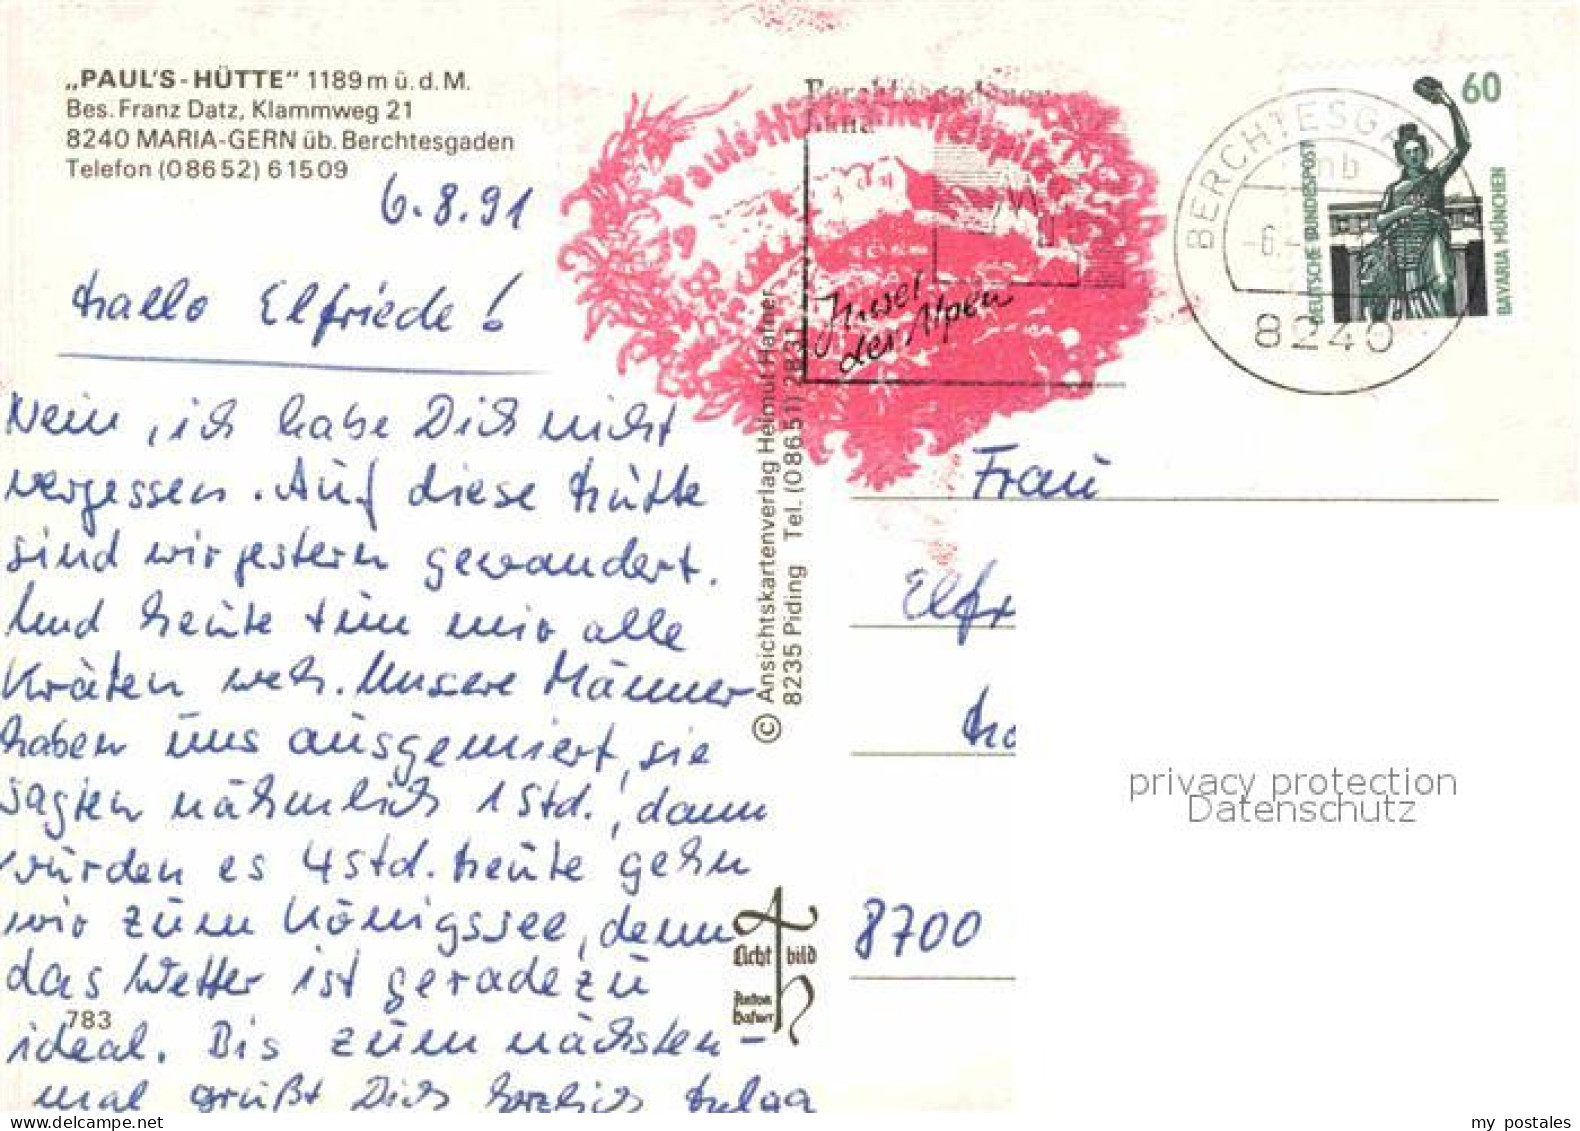 „PAUL'S-HÜTTE" 1189 m ü. d. M.
Bes. Franz Datz, Klammweg 21
8240 MARIA-GERN üb. Berchtesgaden
Telefon (08652) 61509
6.8.91
Hallo Elfriede!
Nein, ich habe Dich nicht
vergessen. Auf diese Hütte
sind wir gestern gewandert.
Und heute tun mir alle
Kräten weh. Unsere Männer
haben uns ausgemiert, sie
sagten nähmlich 1 Std., dann
würden es 4 Std. Heute gehn
wir zum Königssee, denn
das Wetter ist geradezu
ideal. Bis zum nächsten-
mal grüßt Dich herzlich Helga
783
© Ansichtskartenverlag Helmut Hafner
8235 Piding Tel. (08651) 2831
Licht bild
Anton
Hafner
Pauls-Hütte
Berchtesgadener
Land
Insel
der Alpen
BERCHTESGA
mb
-6.-
8240
60
DEUTSCHE BUNDESPOST
BAVARIA MÜNCHEN
Frau
Elfr
Ho
8700
privacy protection
Datenschutz
my postales